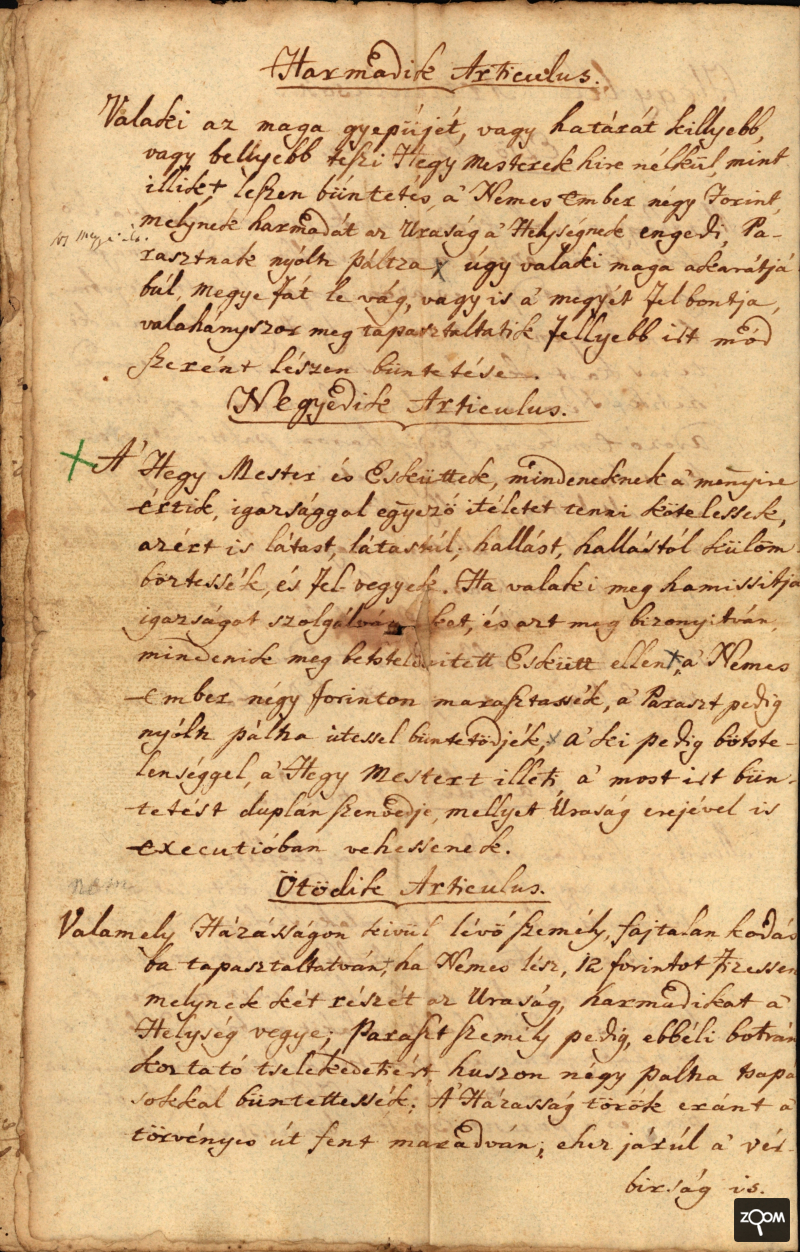 Harmadik Articulus.
Valaki az maga gyepüjét, vagy határát killyebb,
vagy bellyebb teszi Hegy Mesterek hire nélkül, mint
illik, leszen büntetés, a' Nemes Ember négy Forint,
melynek harmadát az Uraság a' Helységnek engedi, Pa-
rasztnak nyóltz páltza, úgy valaki maga akaratjá
búl, megye fát le vág, vagy is a' megyét fel bontja,
valahányszor meg tapasztaltatik fellyebb irt mód
szerént lészen büntetése.
Negyedik Articulus.
A' Hegy Mester és Esküttek, mindeneknek a' menyire
értik, igassággal egyező itéletet tenni kötelessek,
azért is látást, látástúl, hallást, hallástól külöm
böztessék, és fel vegyék. Ha valaki meg hamissitja
igazságot szolgálván kat, és azt meg bizonyitván,
mindenik meg Eskütt ellent, a' Nemes
ember négy forinton marasztassék, a' Paraszt pedig
nyóltz páltza ütessel büntetődjék, a' ki pedig bötste-
lenséggel, a' Hegy Mestert illeti a' most irt bün-
tetést duplán szenvedje, mellyet Uraság erejével is
executióban vehessenek.
Ötödik Articulus.
Valamely Házásságon kivül lévő személy, fajtalankodás
ba tapasztaltatván, ha Nemes lész, 12 forintot fizessen
melynek két részét az Uraság, harmadikat a'
Helység vegye; Paraszt személy pedig, ebbéli botrán
koztató tselekedetiért huszon négy paltza tsapá
sokkal büntettessék. A' Házasság törők eránt a'
törvényes út fent maradván; ehez járúl a' vér-
birság is.
ZOOM